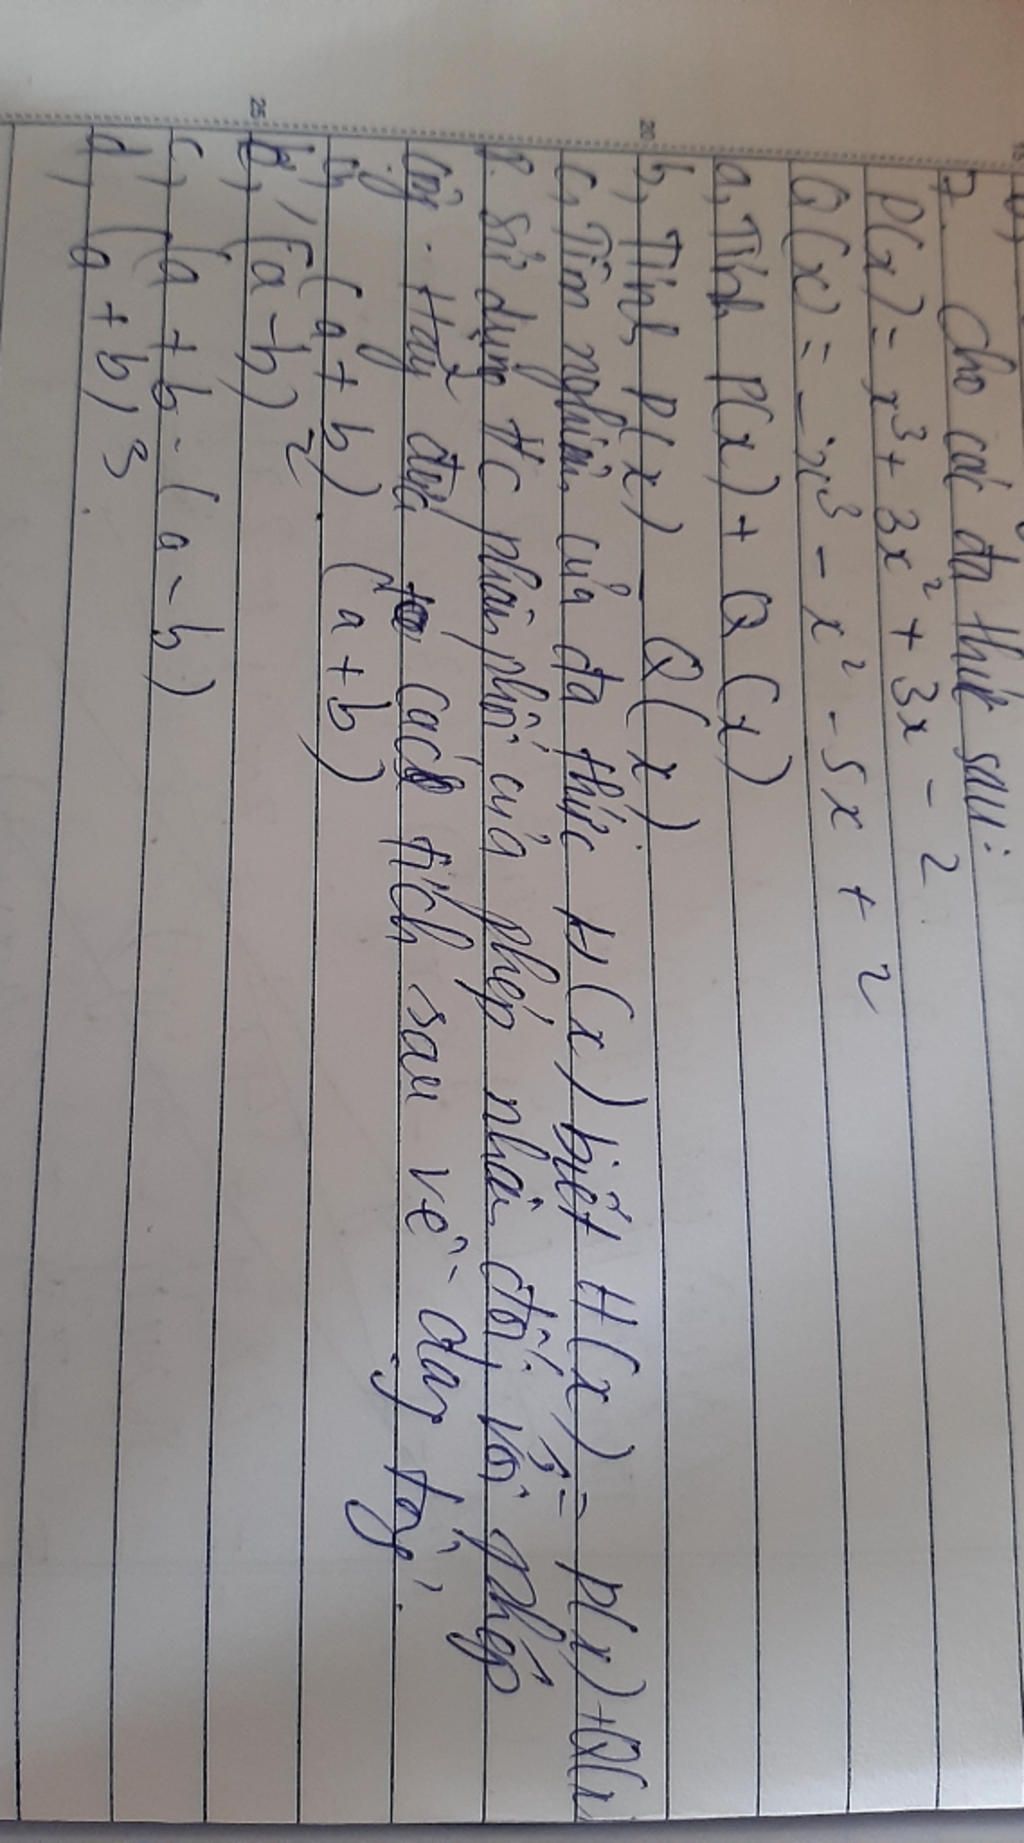 7. Cho các đa thức sau:
P(x) = x³ + 3x² + 3x - 2
Q(x) = -x³ - x² - 5x + 2
a, Tính P(x) + Q(x)
b, Tính P(x) - Q(x)
c, Tìm nghiệm của đa thức H(x) biết H(x) = P(x) + Q(x
8. Sử dụng t/c phân phối của phép nhân đối với phép
cộng. Hãy đưa các tích sau về dạng tổng.
a, (a + b). (a + b)
b, (a - b)²
c, (a + b. (a - b)
d, (a + b)³.
20
25